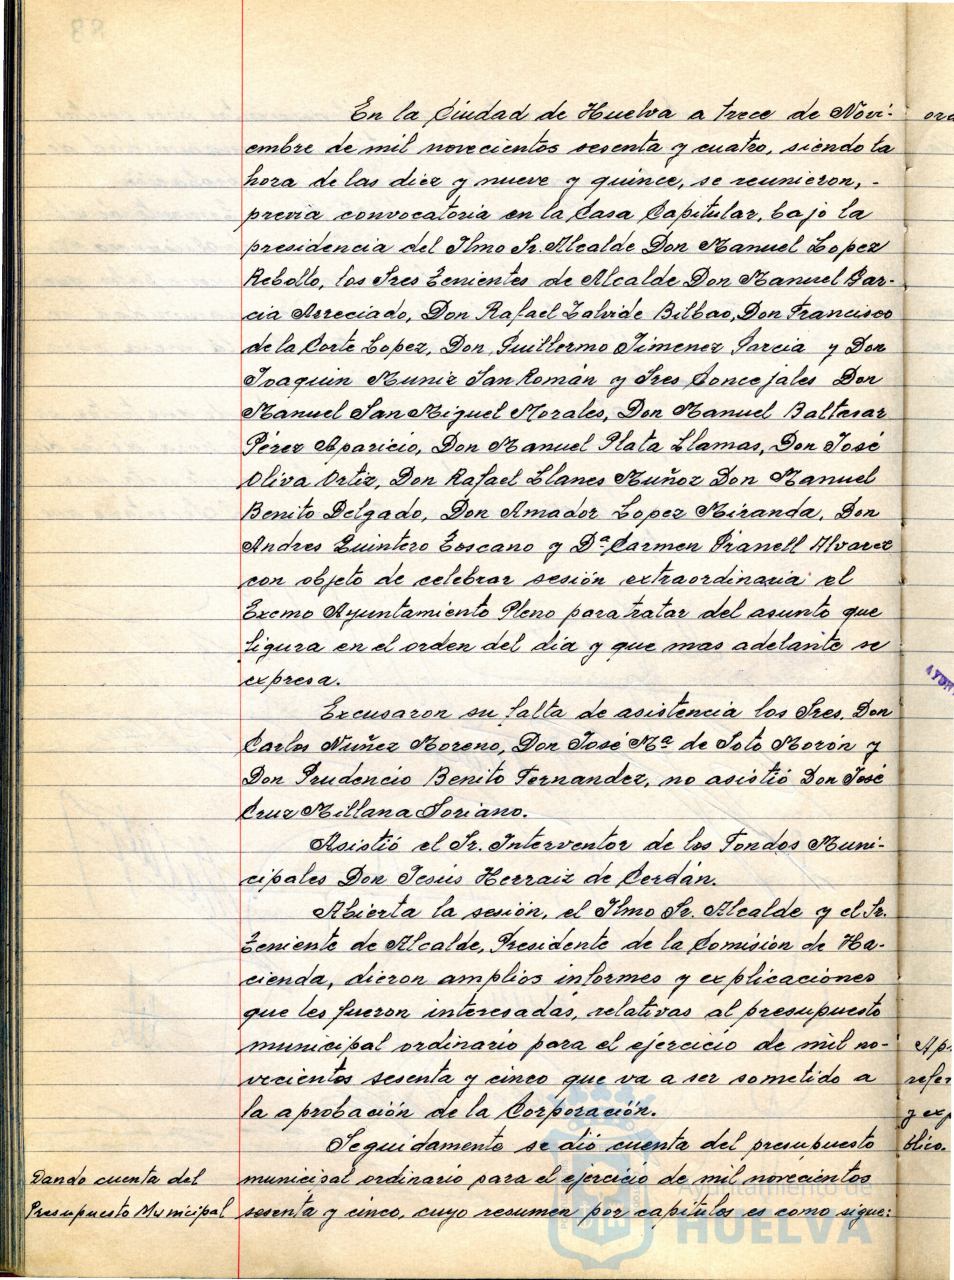 En la Ciudad de Huelva a trece de Novi-
embre de mil novecientos sesenta y cuatro, siendo la
hora de las diez y nueve y quince, se reunieron, -
previa convocatoria en la Casa Capitular, bajo la
presidencia del Ilmo Sr. Alcalde Don Manuel Lopez
Rebollo, los Sres Tenientes de Alcalde Don Manuel Gar-
cia Arreciado, Don Rafael Zalvide Bilbao, Don Francisco
de la Corte Lopez, Don Guillermo Jimenez Garcia y Don
Joaquin Muniz San Román y Sres Concejales Don
Manuel San Miguel Morales, Don Manuel Baltasar
Pérez Aparicio, Don Manuel Plata Llamas, Don José
Oliva Ortiz, Don Rafael Llanes Muñoz Don Manuel
Benito Delgado, Don Amador Lopez Miranda, Don
Andres Quintero Toscano y Dª Carmen Pranell Alvarez
con objeto de celebrar sesión extraordinaria el
Excmo Ayuntamiento Pleno para tratar del asunto que
figura en el orden del día y que mas adelante se
expresa.
Excusaron su falta de asistencia los Sres. Don
Carlos Nuñez Moreno, Don José Mª de Soto Morón y
Don Prudencio Benito Fernandez, no asistió Don José
Cruz Millana Soriano.
Asistió el Sr. Interventor de los Fondos Muni-
cipales Don Jesús Herraiz de Cerdán.
Abierta la sesión, el Ilmo Sr. Alcalde y el Sr.
Teniente de Alcalde, Presidente de la Comisión de Ha-
cienda, dieron amplios informes y explicaciones
que les fueron interesadas, relativas al presupuesto
municipal ordinario para el ejercicio de mil no-
vecientos sesenta y cinco que va a ser sometido a
la aprobación de la Corporación.
Seguidamente se dió cuenta del presupuesto
Dando cuenta del
Presupuesto Municipal
municipal ordinario para el ejercicio de mil novecientos
sesenta y cinco, cuyo resumen por capitulos es como sigue:
Ayuntamiento de
HUELVA